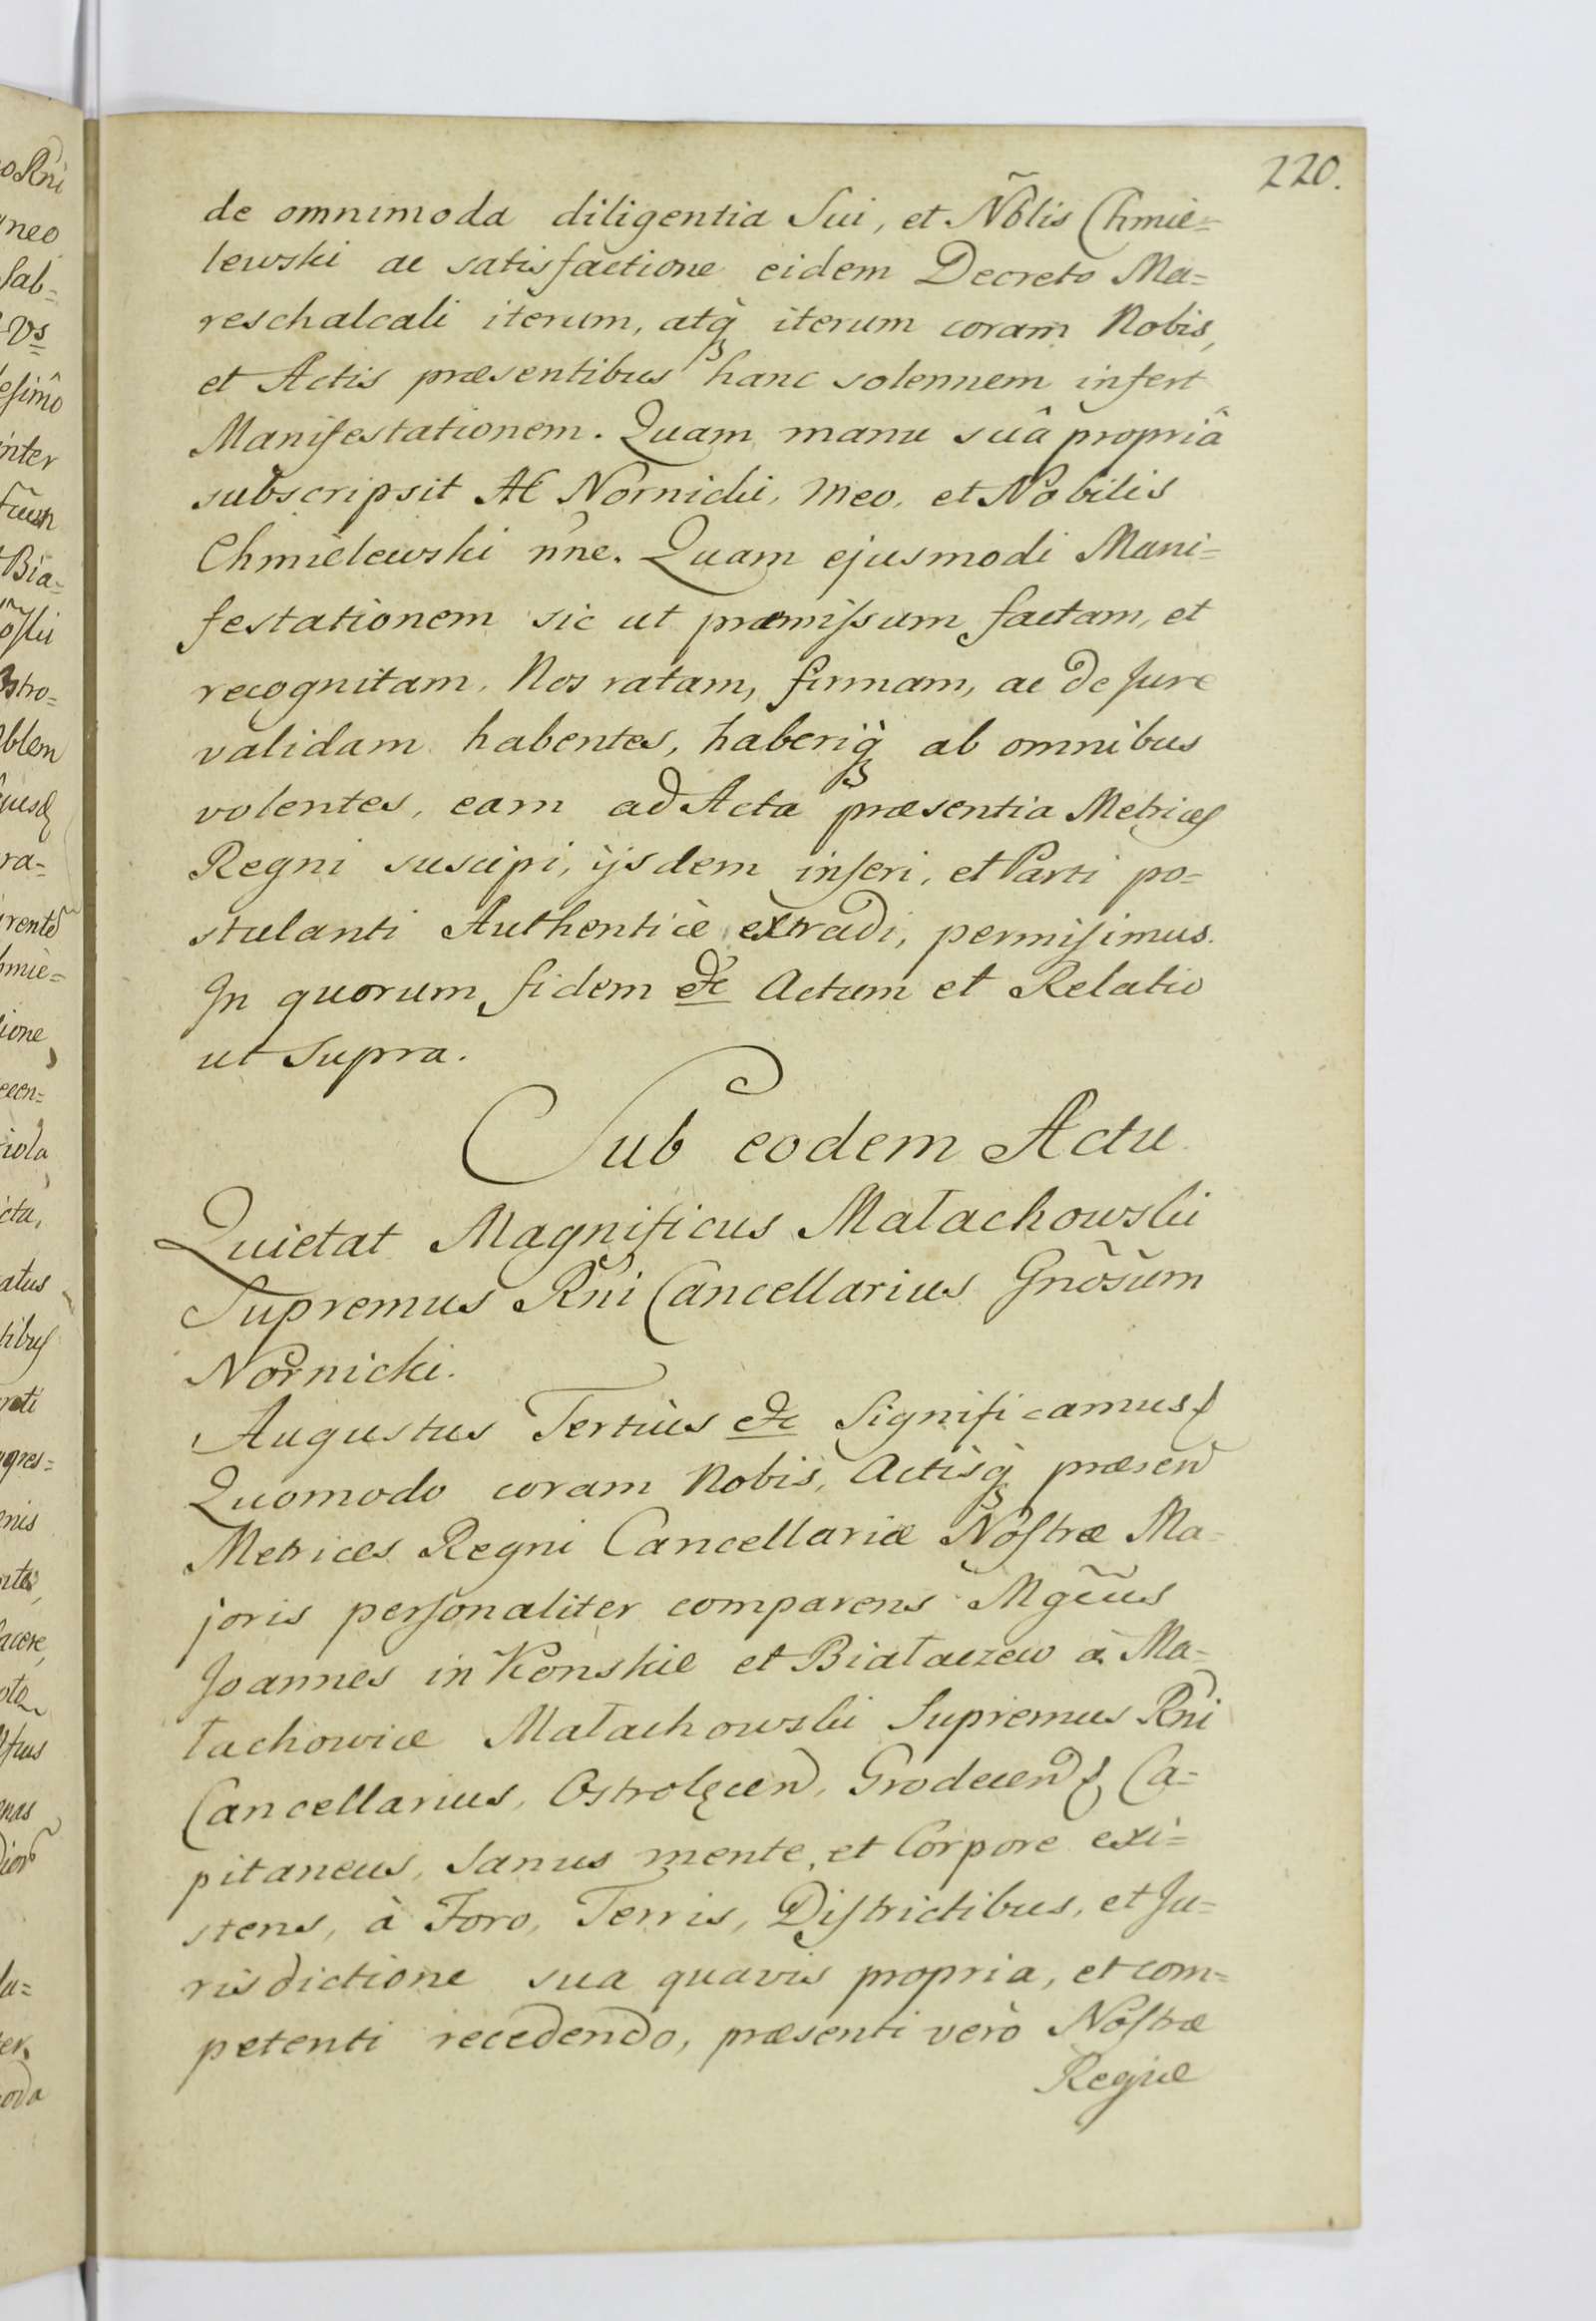 220.
de omnimoda diligentia Sui, et Nõblis Chmie=
lewski ac satisfactione eidem Decreto Ma=
reschalcali iterum, atq̀ iterum coram Nobis,
et Actis præsentibus hanc solennem infert
Manifestationem. Quam manu suâ propriâ
subscripsit AC Nornicki, meo, et Nobilis
Chmielewski nñe. Quam ejusmodi Mani=
festationem sic ut præmiſsum factam, et
recognitam, Nos ratam, firmam, ac de Jure
validam habentes, haberiq̀ ab omnibus
volentes, eam ad Acta præsentia Metrices
Regni suscipi, ijsdem inſeri, et Parti po=
stulanti Authenticè extradi, permiſimus.
In quorum fidem etc Actum et Relatio
ut Supra.
Sub eodem Actu
Quietat Magnificus Małachowski
Supremus Rñi Cancellarius Gnõsum
Nornicki.
Augustus Tertius etc Significamus etc
Quomodo coram Nobis, Actisq̀ præsen
Metrices Regni Cancellariæ Noſtræ Ma=
joris perſonaliter comparens Mgñus
Joannes in Konskie et Białaczew à Ma=
łachowice Małachowski Supremus Rñi
Cancellarius, Ostrołęcen, Grodecen etc Ca=
pitaneus, Sanus mente, et Corpore exi=
stens, à Foro, Terris, Diſtrictibus, et Ju=
risdictione sua quavis propria, et com=
petenti recedendo, præsenti verò Noſtræ
Regiæ